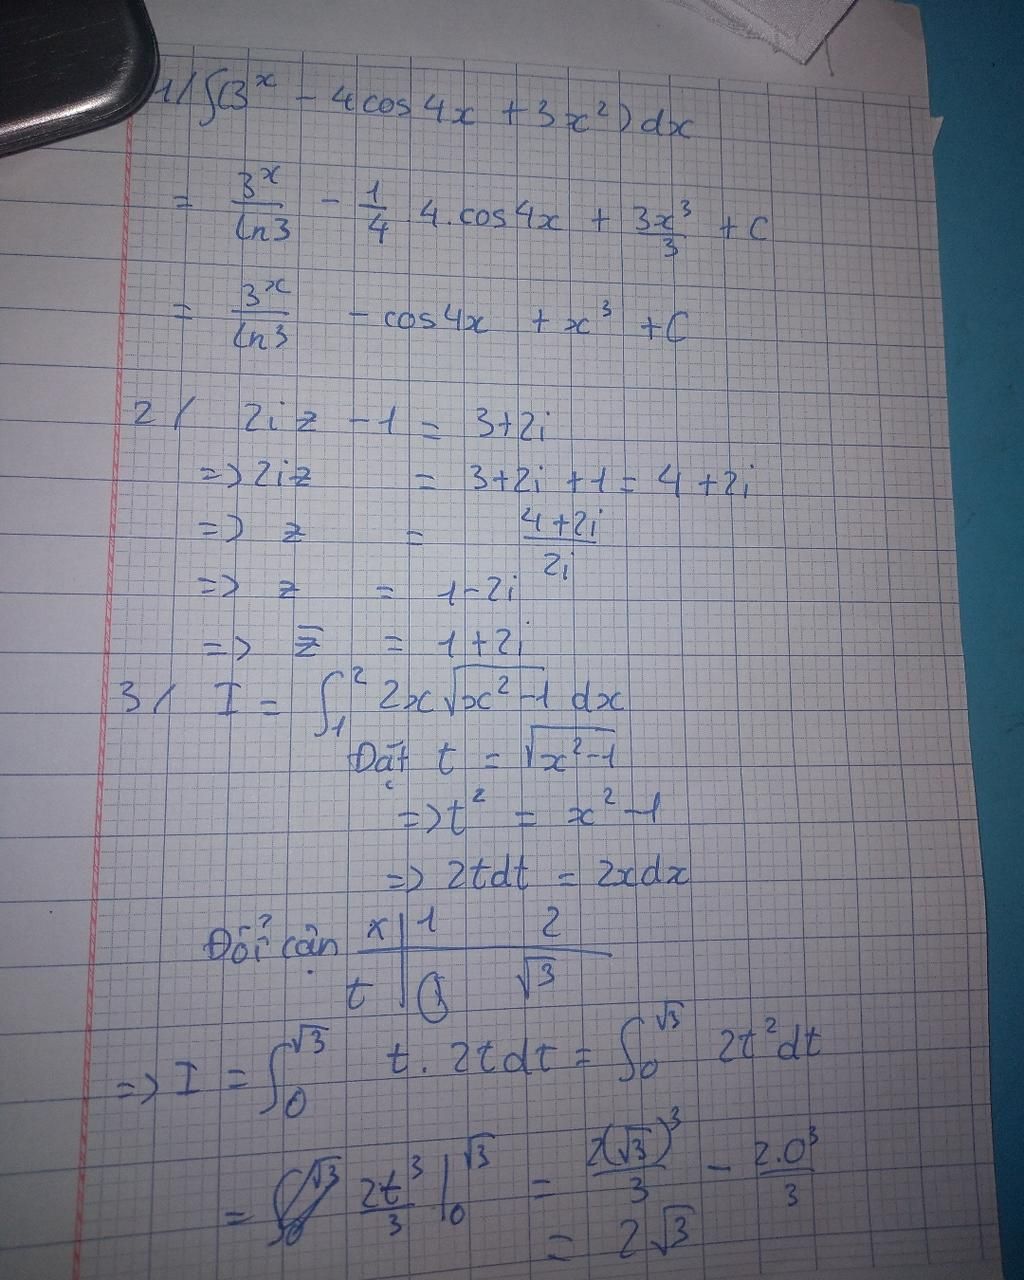 1/ ∫(3^x - 4cos4x + 3x²)dx
= 3^x/ln3 - 1/4 4.cos4x + 3x³/3 + C
= 3^x/ln3 - cos4x + x³ + C
2/ 2iz - 1 = 3+2i
=> 2iz = 3+2i+1 = 4+2i
=> z = (4+2i)/2i
=> z = 1-2i
=> z̅ = 1+2i
3/ I = ∫₁² 2x√(x²-1) dx
Đặt t = √(x²-1)
=> t² = x²-1
=> 2tdt = 2xdx
Đổi cận x | 1 2
t | 0 √3
=> I = ∫₀^√3 t.2tdt = ∫₀^√3 2t²dt
= 2t³/3 |₀^√3 = 2(√3)³/3 - 2.0³/3
= 2√3